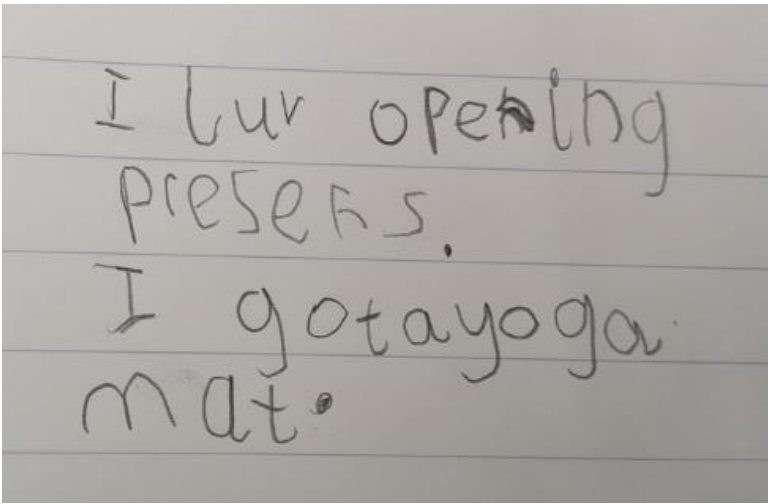 I luv opening
presens.
I gotayoga
mat.